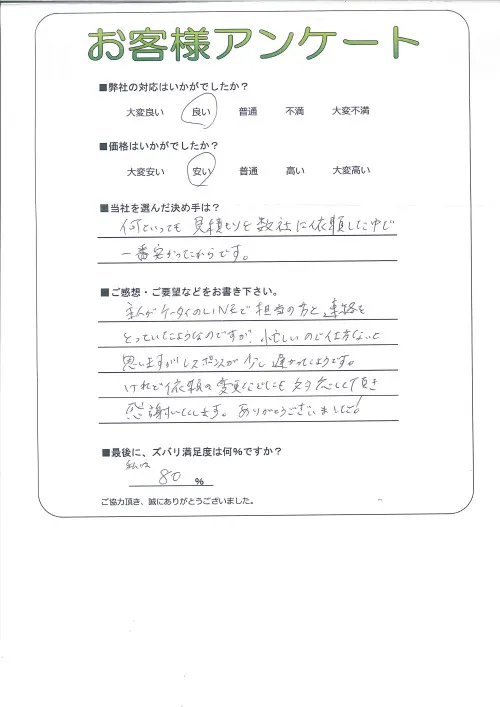 お客様アンケート
■弊社の対応はいかがでしたか？
大変良い 良い 普通 不満 大変不満
■価格はいかがでしたか？
大変安い 安い 普通 高い 大変高い
■当社を選んだ決め手は？
何といっても 見積もりを数社に依頼した中で
一番安かったからです。
■ご感想・ご要望などをお書き下さい。
主人がケータイのLINEで担当の方と連絡を
とっていたようなのですが、忙しいので仕方ないと
思いますがレスポンスが少し遅かったようです。
けれど依頼の変更などにも対応して頂き
感謝いたします。ありがとうございました！
■最後に、ズバリ満足度は何％ですか？
私は
80 ％
ご協力頂き、誠にありがとうございました。